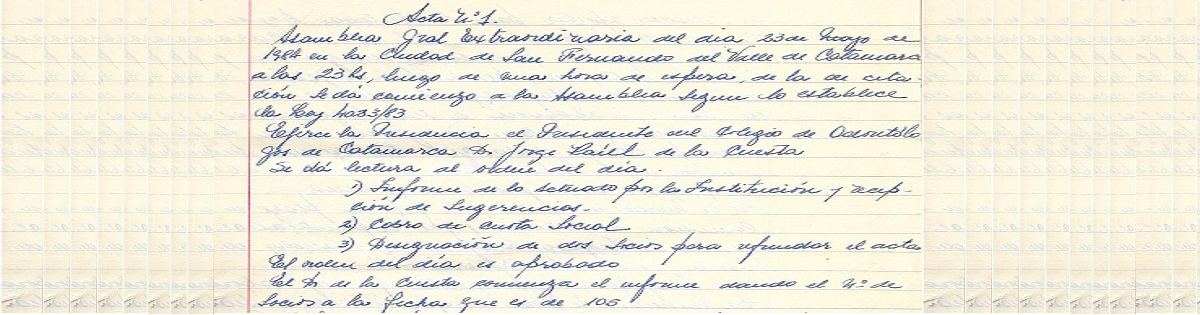 Acta Nº 1.
Asamblea Gral Extraordinaria del dia 23 de Mayo de
1984 en la Ciudad de San Fernando del Valle de Catamarca
a las 23 hs, luego de una hora de espera, de la de cita-
ción se dá comienzo a la Asamblea segun lo establece
la Ley 4033/83
Ejerce la Presidencia el Presidente del Colegio de Odontólo
gos de Catamarca Dr. Jorge de la Cuesta
Se dá lectura al orden del día.
1) Informe de lo actuado por la Institución y recep-
ción de sugerencias.-
2) Cobro de cuota Social
3) Designación de dos socios para refrendar el acta
El orden del día es aprobado
El Dr de la Cuesta comienza el informe dando el Nº de
Socios a la fecha que es de 105